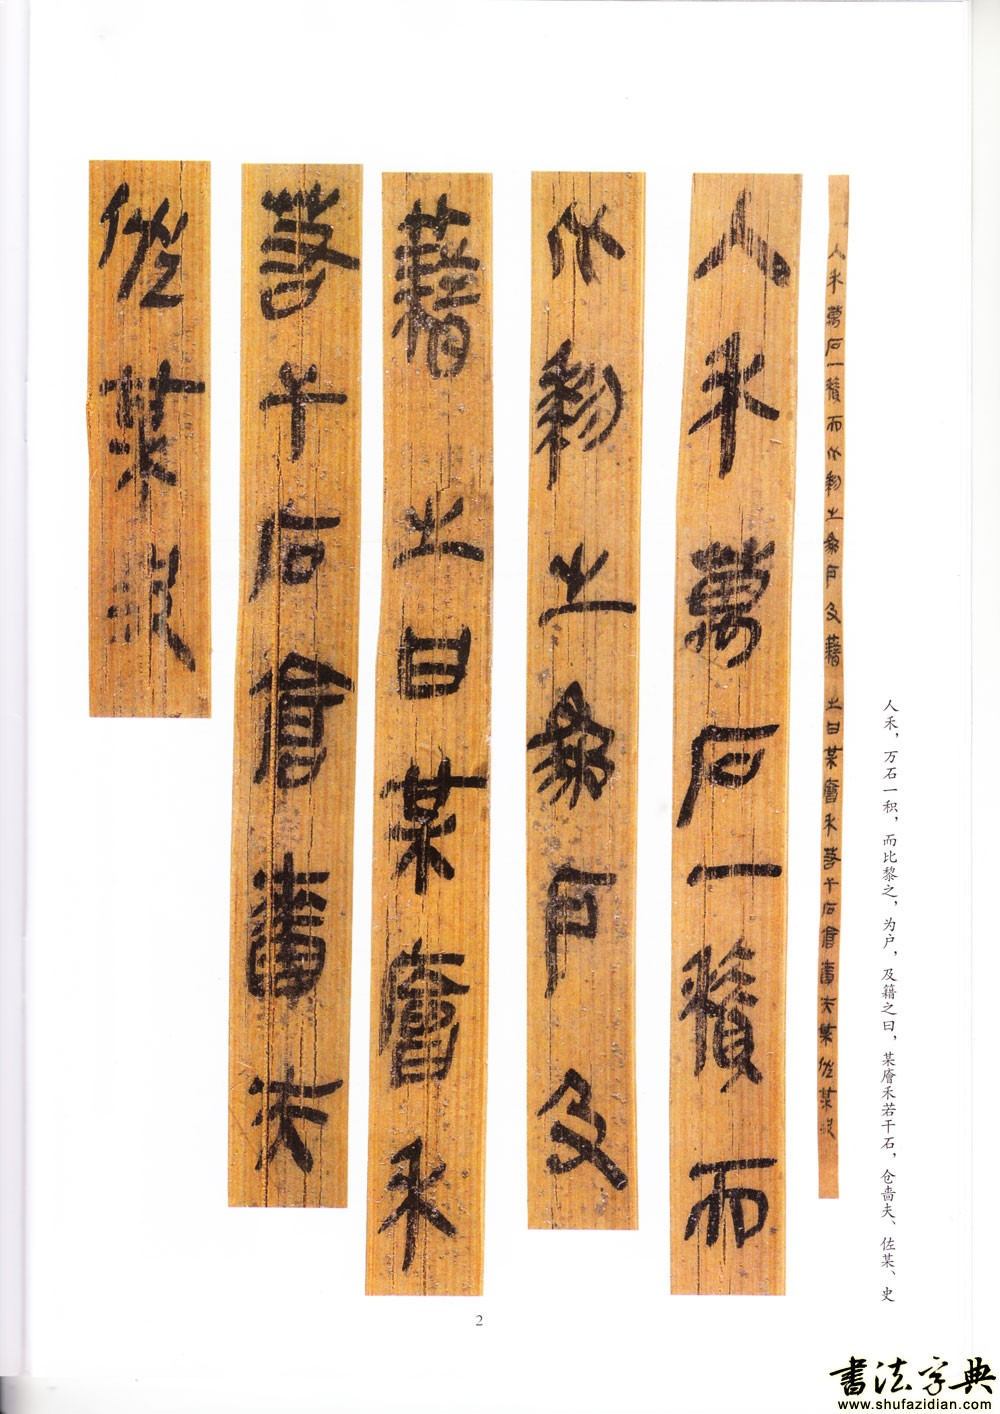 人禾，万石一积，而比黎之，为户，及籍之曰，某廥禾若干石，仓啬夫、佐某、史
入禾萬石一積而比黎之為戶及籍之曰某廥禾若干石倉嗇夫某佐某史
入禾萬石一積而
比黎之為戶及
籍之曰某廥禾
若干石倉嗇夫
佐某史
2
書法字典
www.shufazidian.com